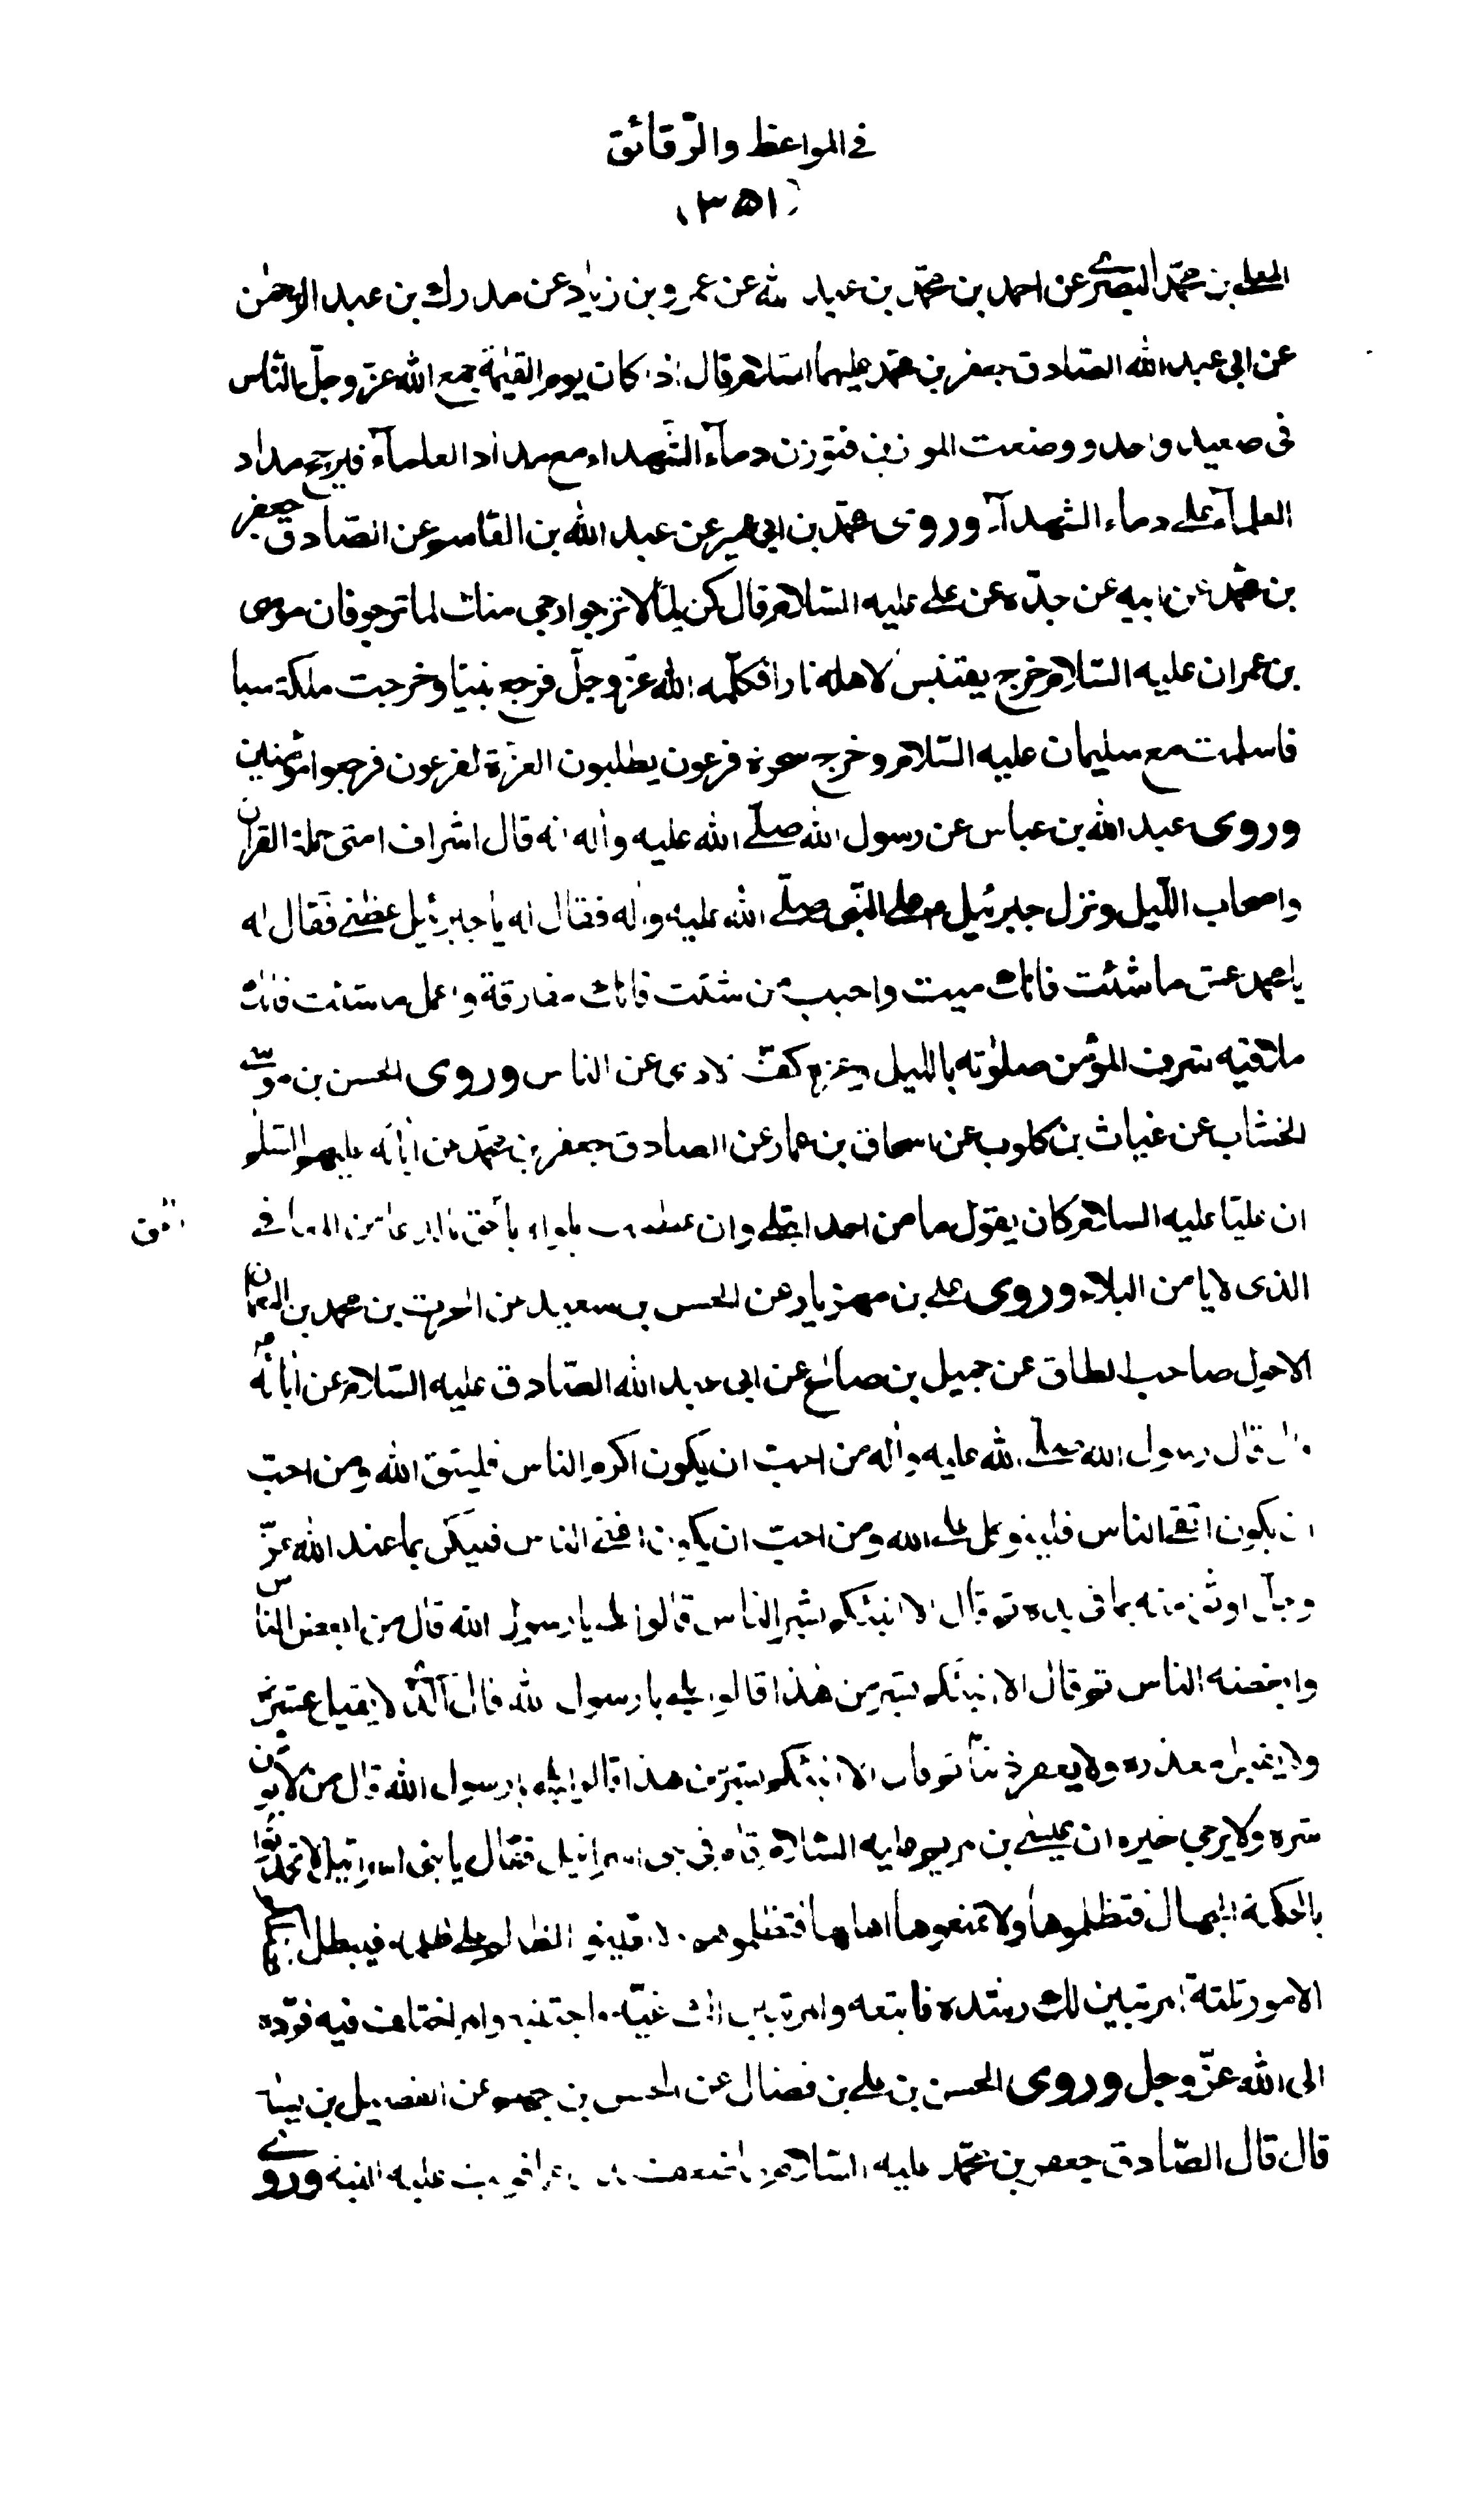 في المواعظ والرقائق
٣٥١
المعلى بن محمد البصري عن احمد بن محمد بن عبد الله عن عمرو بن زياد عن مدرك بن عبد الرحمن
عن ابي عبد الله الصادق جعفر بن محمد عليهما السلام قال اذا كان يوم القيمة جمع الله عز وجل الناس
في صعيد واحد ووضعت الموازين فتوزن دماء الشهداء مع مداد العلماء فيرجح مداد
العلماء على دماء الشهداء وروى محمد بن ابي عمير عن عبد الله بن القاسم عن الصادق جعفر
بن محمد عن ابيه عن جده عن علي عليه السلام قال كن لما لا ترجوا رجى منك لما ترجو فان موسى
بن عمران عليه السلام خرج يقتبس لاهله نارا فكلمه الله عز وجل فرجع نبيا وخرجت ملكة سبا
فاسلمت مع سليمان عليه السلام وخرج سحرة فرعون يطلبون العزة لفرعون فرجعوا مؤمنين
وروى عبد الله بن عباس عن رسول الله صلى الله عليه واله انه قال اشراف امتي حملة القران
واصحاب الليل ونزل جبرئيل على النبي صلى الله عليه واله فقال له يا جبرئيل عظني فقال له
يا محمد عش ما شئت فانك ميت واحبب من شئت فانك مفارقة واعمل ما شئت فانك
ملاقيه شرف المؤمن صلوته بالليل وعزه كف الاذى عن الناس وروى الحسن بن موسى
الخشاب عن غياث بن كلوب عن اسحاق بن عمار عن الصادق جعفر بن محمد عن ابائه عليهم السلم
ان عليا عليه السلام كان يقول ما من احد ابتلي وان عظمت بلواه باحق بالدعاء من المعافى
الذي لا يامن البلاء وروى علي بن مهزيار عن الحسين بن سعيد عن الحرث بن محمد بن النعمان
الاحول صاحب الطاق عن جميل بن صالح عن ابي عبد الله الصادق عليه السلام عن ابائه
قال قال رسول الله صلى الله عليه واله من احب ان يكون اكرم الناس فليتق الله ومن احب
ان يكون اتقى الناس فليتوكل على الله ومن احب ان يكون اغنى الناس فليكن بما عند الله عز
وجل اوثق منه بما في يده ثم قال الا انبئكم بشر الناس قالوا بلى يا رسول الله قال من ابغض الناس
وابغضه الناس ثم قال الا انبئكم بشر من هذا قالوا بلى يا رسول الله قال الذي لا يقيل عثرة
ولا يقبل معذرة ولا يغفر ذنبا ثم قال الا انبئكم بشر من هذا قالوا بلى يا رسول الله قال من لا يؤمن
شره ولا يرجى خيره ان عيسى بن مريم عليه السلام قام في بني اسرائيل فقال يا بني اسرائيل لا تحدثوا
بالحكمة الجهال فتظلموها ولا تمنعوها اهلها فتظلموهم ولا تعينوا الظالم على ظلمه فيبطل فضلكم
الامور ثلثة امر تبين لك رشده فاتبعه وامر تبين لك غيه فاجتنبه وامر اختلف فيه فرده
الى الله عز وجل وروى الحسن بن علي بن فضال عن الحسن بن جهم عن الفضيل بن يسار
قال قال الصادق جعفر بن محمد عليه السلام ما ضعف بدن عما قويت عليه النية وروى